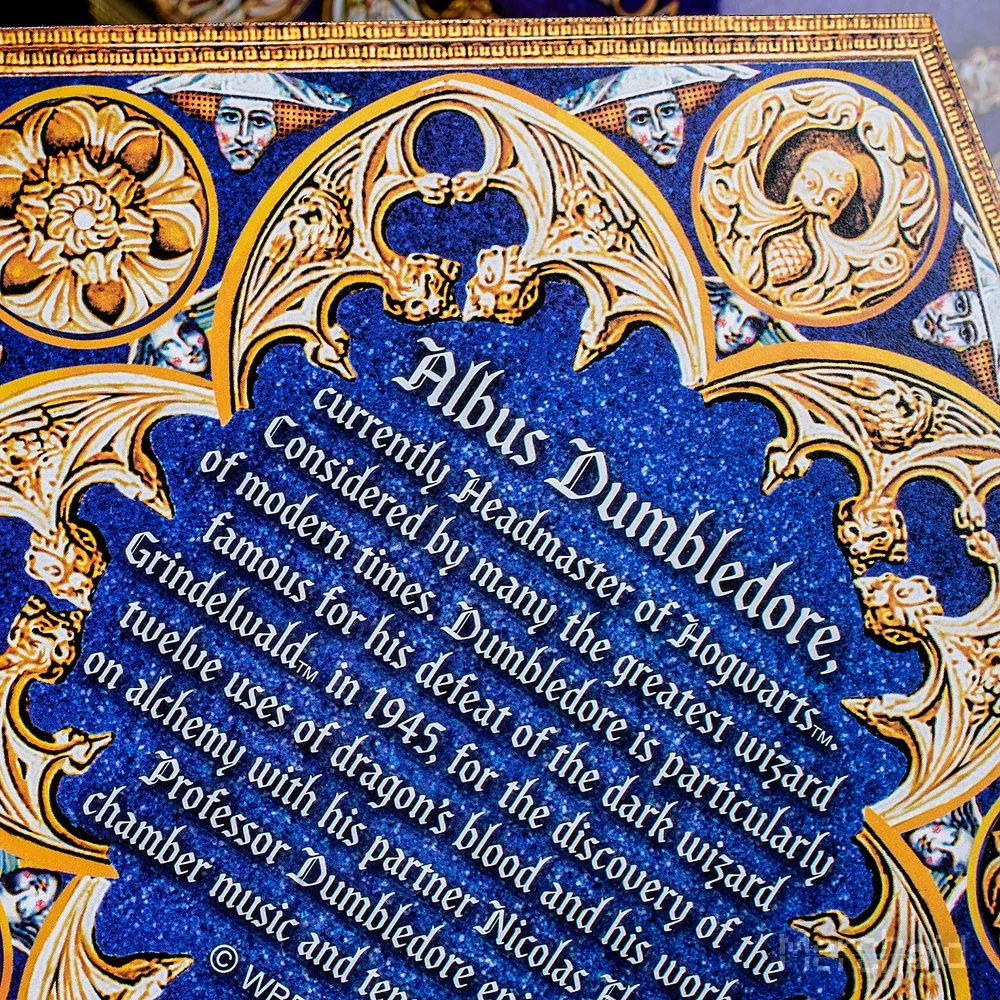 Albus Dumbledore,
currently Headmaster of Hogwarts™.
Considered by many the greatest wizard
of modern times. Dumbledore is particularly
famous for his defeat of the dark wizard
Grindelwald™ in 1945, for the discovery of the
twelve uses of dragon's blood and his work
on alchemy with his partner Nicolas
Professor Dumbledore
chamber music and
©